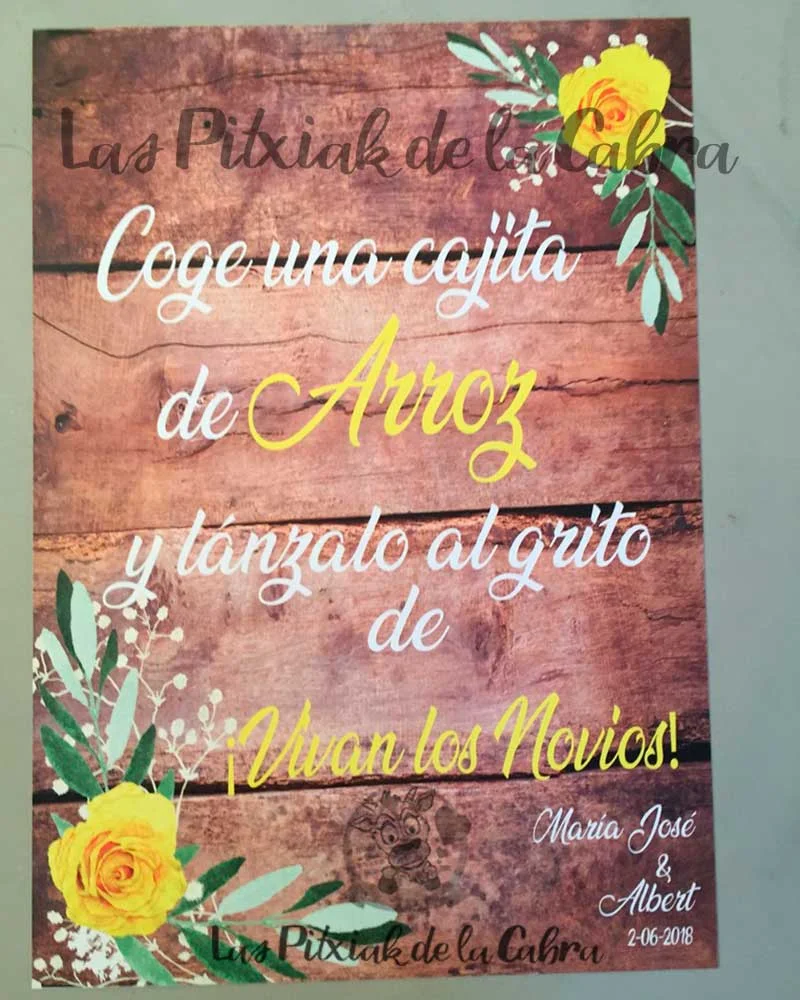 Las Pitxiak de la Cabra
Coge una cajita
de Arroz
y lánzalo al grito
de
¡Vivan los Novios!
María José
&
Albert
2-06-2018
Las Pitxiak de la Cabra